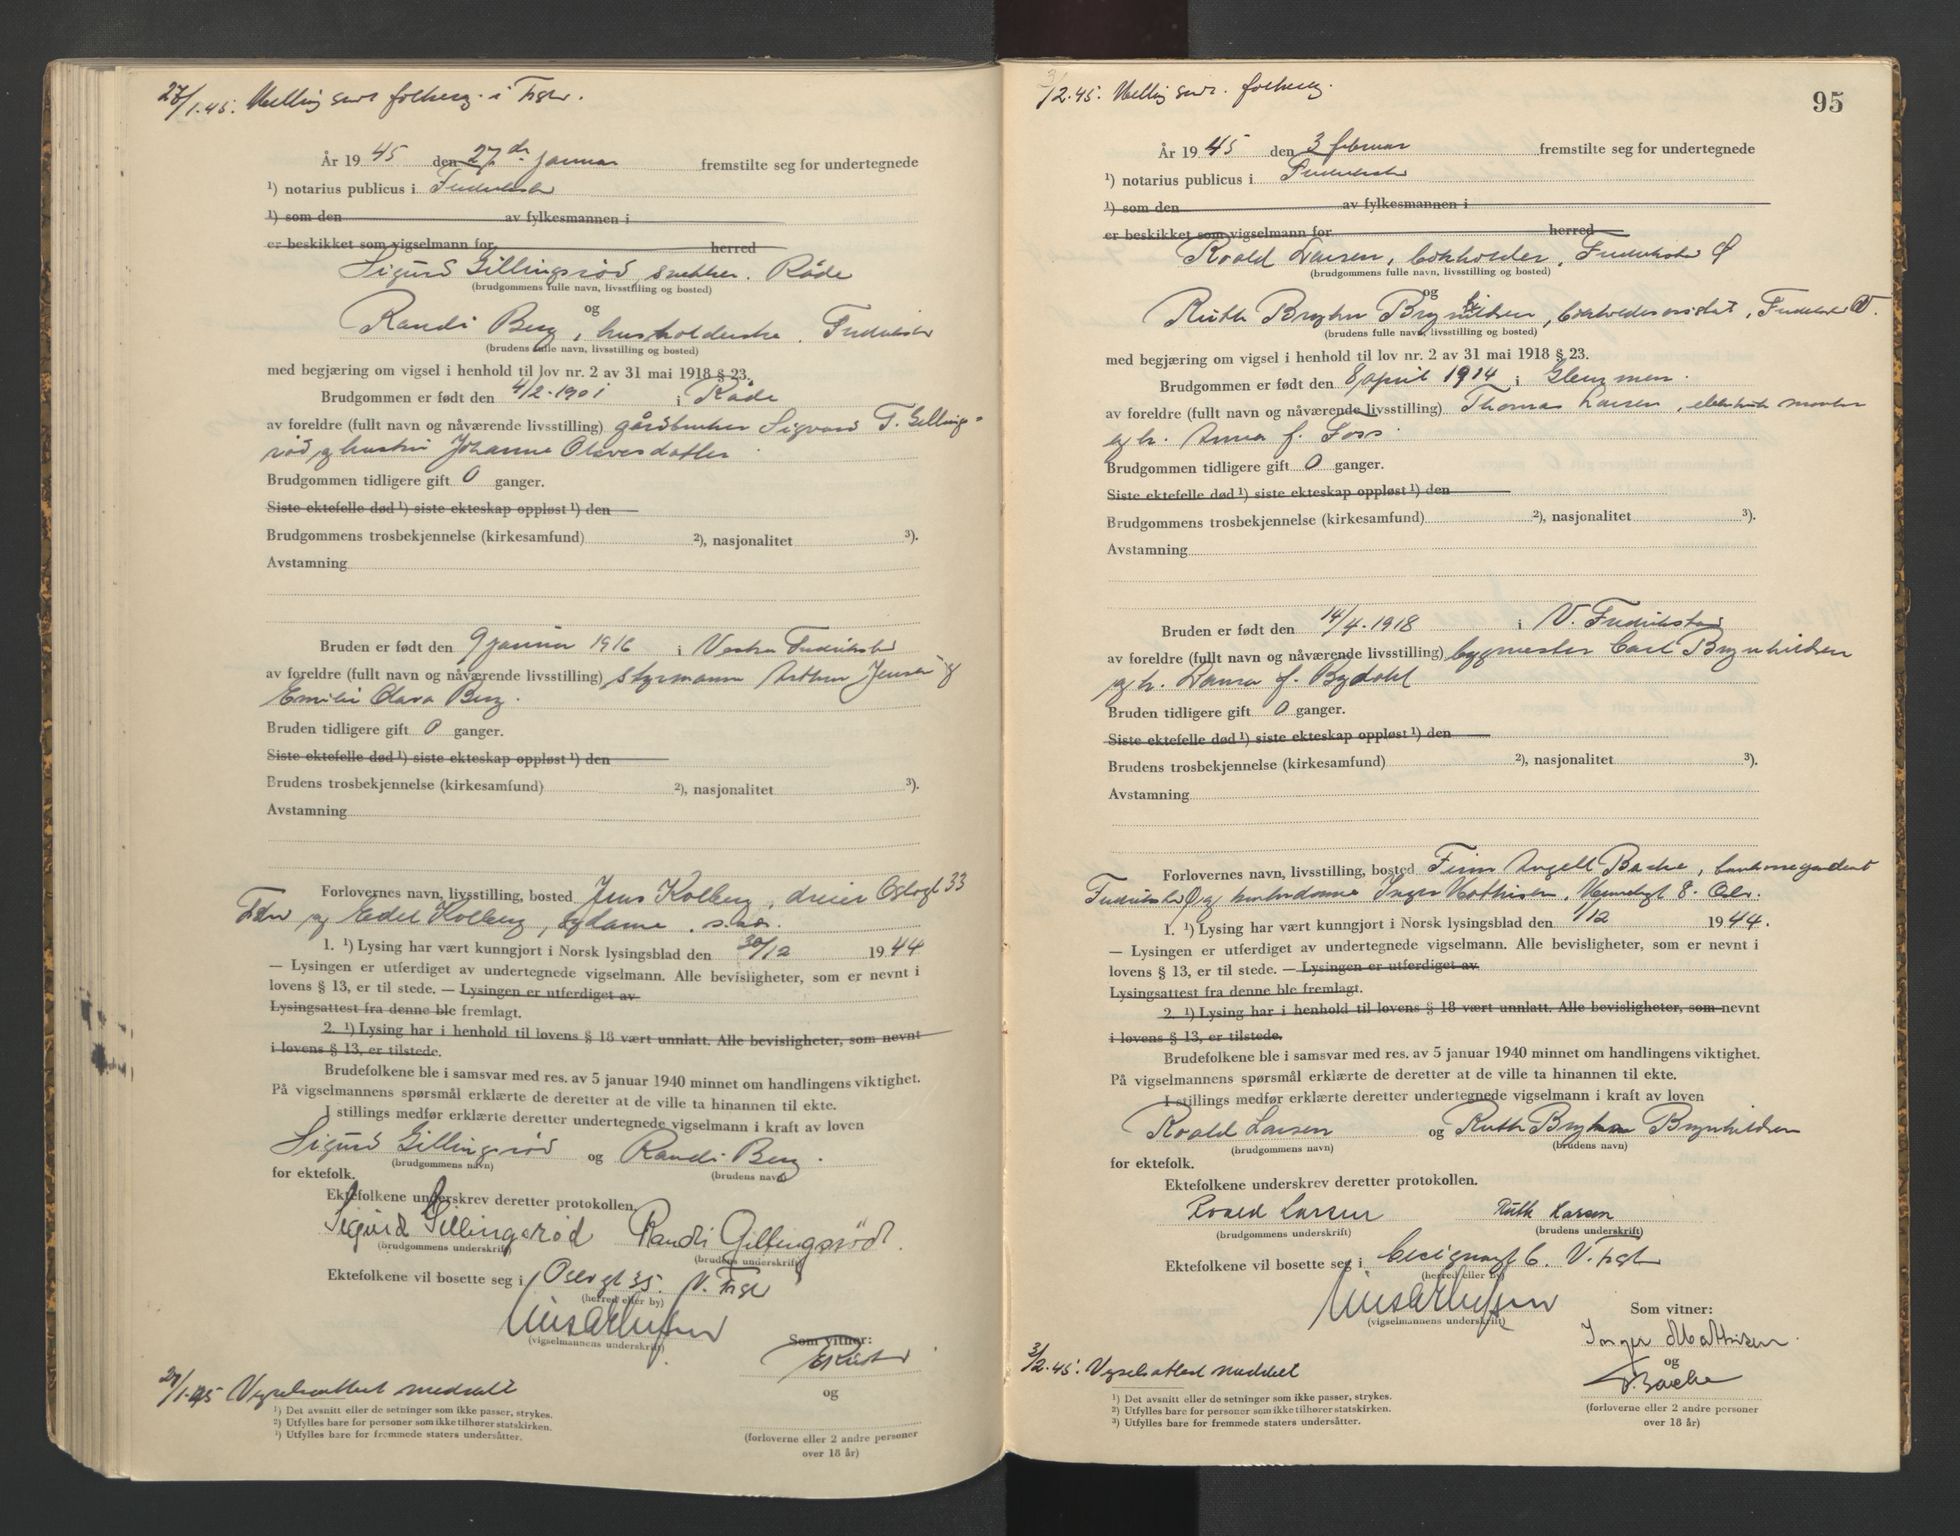 27/1.45. Melding sendt folkereg. i Frst.
År 1945 den 27de januar fremstilte seg for undertegnede
¹) notarius publicus i Fredrikstad
¹) som den av fylkesmannen i
er beskikket som vigselmann for herred
Sigurd Gillingsrød, snekker. Råde
(brudgommens fulle navn, livsstilling og bosted)
og
Randi Berg, husholderske. Fredrikstad
(brudens fulle navn, livsstilling og bosted)
med begjæring om vigsel i henhold til lov nr. 2 av 31 mai 1918 § 23.
Brudgommen er født den 4/2-1901 i Råde
av foreldre (fullt navn og nåværende livsstilling) gårdbruker Sigvard T. Gillings-
rød og hustru Johanne Olavesdatter
Brudgommen tidligere gift 0 ganger.
Siste ektefelle død ¹) siste ekteskap oppløst ¹) den
Brudgommens trosbekjennelse (kirkesamfund) ²), nasjonalitet ³).
Avstamning
Bruden er født den 9 januar 1916 i Vestre Fredrikstad
av foreldre (fullt navn og nåværende livsstilling) styrmann Arthur Jensen og
Emilie Clara Berg.
Bruden tidligere gift 0 ganger.
Siste ektefelle død ¹) siste ekteskap oppløst ¹) den
Brudens trosbekjennelse (kirkesamfund) ²), nasjonalitet ³).
Avstamning
Forlovernes navn, livsstilling, bosted Jens Kolberg, dreier Oslogt 33
og Edel Kolberg, sydame. s.st.
1. ¹) Lysing har vært kunngjort i Norsk lysingsblad den 30/12 1944
— Lysingen er utferdiget av undertegnede vigselmann. Alle bevisligheter, som er nevnt i
lovens § 13, er til stede. — Lysingen er utferdiget av
Lysingsattest fra denne ble fremlagt.
2. ¹) Lysing har i henhold til lovens § 18 vært unnlatt. Alle bevisligheter, som nevnt
i lovens § 13, er tilstede.
Brudefolkene ble i samsvar med res. av 5 januar 1940 minnet om handlingens viktighet.
På vigselmannens spørsmål erklærte de deretter at de ville ta hinannen til ekte.
I stillings medfør erklærte deretter undertegnede vigselmann i kraft av loven
Sigurd Gillingsrød og Randi Berg.
(brudgommens navn) (brudens navn)
for ektefolk.
Ektefolkene underskrev deretter protokollen.
Sigurd Gillingsrød Randi Gillingsrød.
(brudgommens underskrift) (brudens underskrift)
Ektefolkene vil bosette seg i Oslogt 35. V. Frst
(herred eller by)
(vigselmannens underskrift)
Som vitner:
og
27/1.45 Vigselsattest meddelt
¹) Det avsnitt eller de setninger som ikke passer, strykes.
²) Utfylles bare for personer som ikke tilhører statskirken.
³) Utfylles bare for fremmede staters undersåtter.
(forloverne eller 2 andre personer
over 18 år)
95
3/2.45. Melding sendt. folkereg.
År 1945 den 3 februar fremstilte seg for undertegnede
¹) notarius publicus i Fredrikstad
¹) som den av fylkesmannen i
er beskikket som vigselmann for herred
Roald Larsen, bokholder, Fredrikstad Ø
(brudgommens fulle navn, livsstilling og bosted)
og
Ruth Bryhn Brynhildsen, Fredrikstad V.
(brudens fulle navn, livsstilling og bosted)
med begjæring om vigsel i henhold til lov nr. 2 av 31 mai 1918 § 23.
Brudgommen er født den 8 april 1914 i Glemmen.
av foreldre (fullt navn og nåværende livsstilling) Thomas Larsen,
og h. Anna f. Foss.
Brudgommen tidligere gift 0 ganger.
Siste ektefelle død ¹) siste ekteskap oppløst ¹) den
Brudgommens trosbekjennelse (kirkesamfund) ²), nasjonalitet ³).
Avstamning
Bruden er født den 14/4-1918 i V. Fredrikstad
av foreldre (fullt navn og nåværende livsstilling) bygmester Carl Brynhildsen
og h. Laura f. Bydahl
Bruden tidligere gift 0 ganger.
Siste ektefelle død ¹) siste ekteskap oppløst ¹) den
Brudens trosbekjennelse (kirkesamfund) ²), nasjonalitet ³).
Avstamning
Forlovernes navn, livsstilling, bosted Finn Angell Bache,
Fredrikstad Ø og Inger Mathisen,
1. ¹) Lysing har vært kunngjort i Norsk lysingsblad den 1/12 1944.
— Lysingen er utferdiget av undertegnede vigselmann. Alle bevisligheter, som er nevnt i
lovens § 13, er til stede. — Lysingen er utferdiget av
Lysingsattest fra denne ble fremlagt.
2. ¹) Lysing har i henhold til lovens § 18 vært unnlatt. Alle bevisligheter, som nevnt
i lovens § 13, er tilstede.
Brudefolkene ble i samsvar med res. av 5 januar 1940 minnet om handlingens viktighet.
På vigselmannens spørsmål erklærte de deretter at de ville ta hinannen til ekte.
I stillings medfør erklærte deretter undertegnede vigselmann i kraft av loven
Roald Larsen og Ruth Bryhn Brynhildsen
(brudgommens navn) (brudens navn)
for ektefolk.
Ektefolkene underskrev deretter protokollen.
Roald Larsen Ruth Larsen
(brudgommens underskrift) (brudens underskrift)
Ektefolkene vil bosette seg i 6. V. Frst
(herred eller by)
(vigselmannens underskrift)
Som vitner:
Inger Mathisen.
og
F. Bache
3/2.45. Vigselsattest meddelt
¹) Det avsnitt eller de setninger som ikke passer, strykes.
²) Utfylles bare for personer som ikke tilhører statskirken.
³) Utfylles bare for fremmede staters undersåtter.
(forloverne eller 2 andre personer
over 18 år)